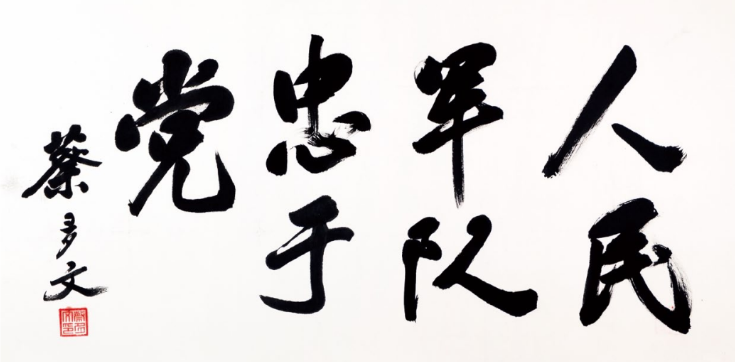 人民
军队
忠于
党
蔡多文